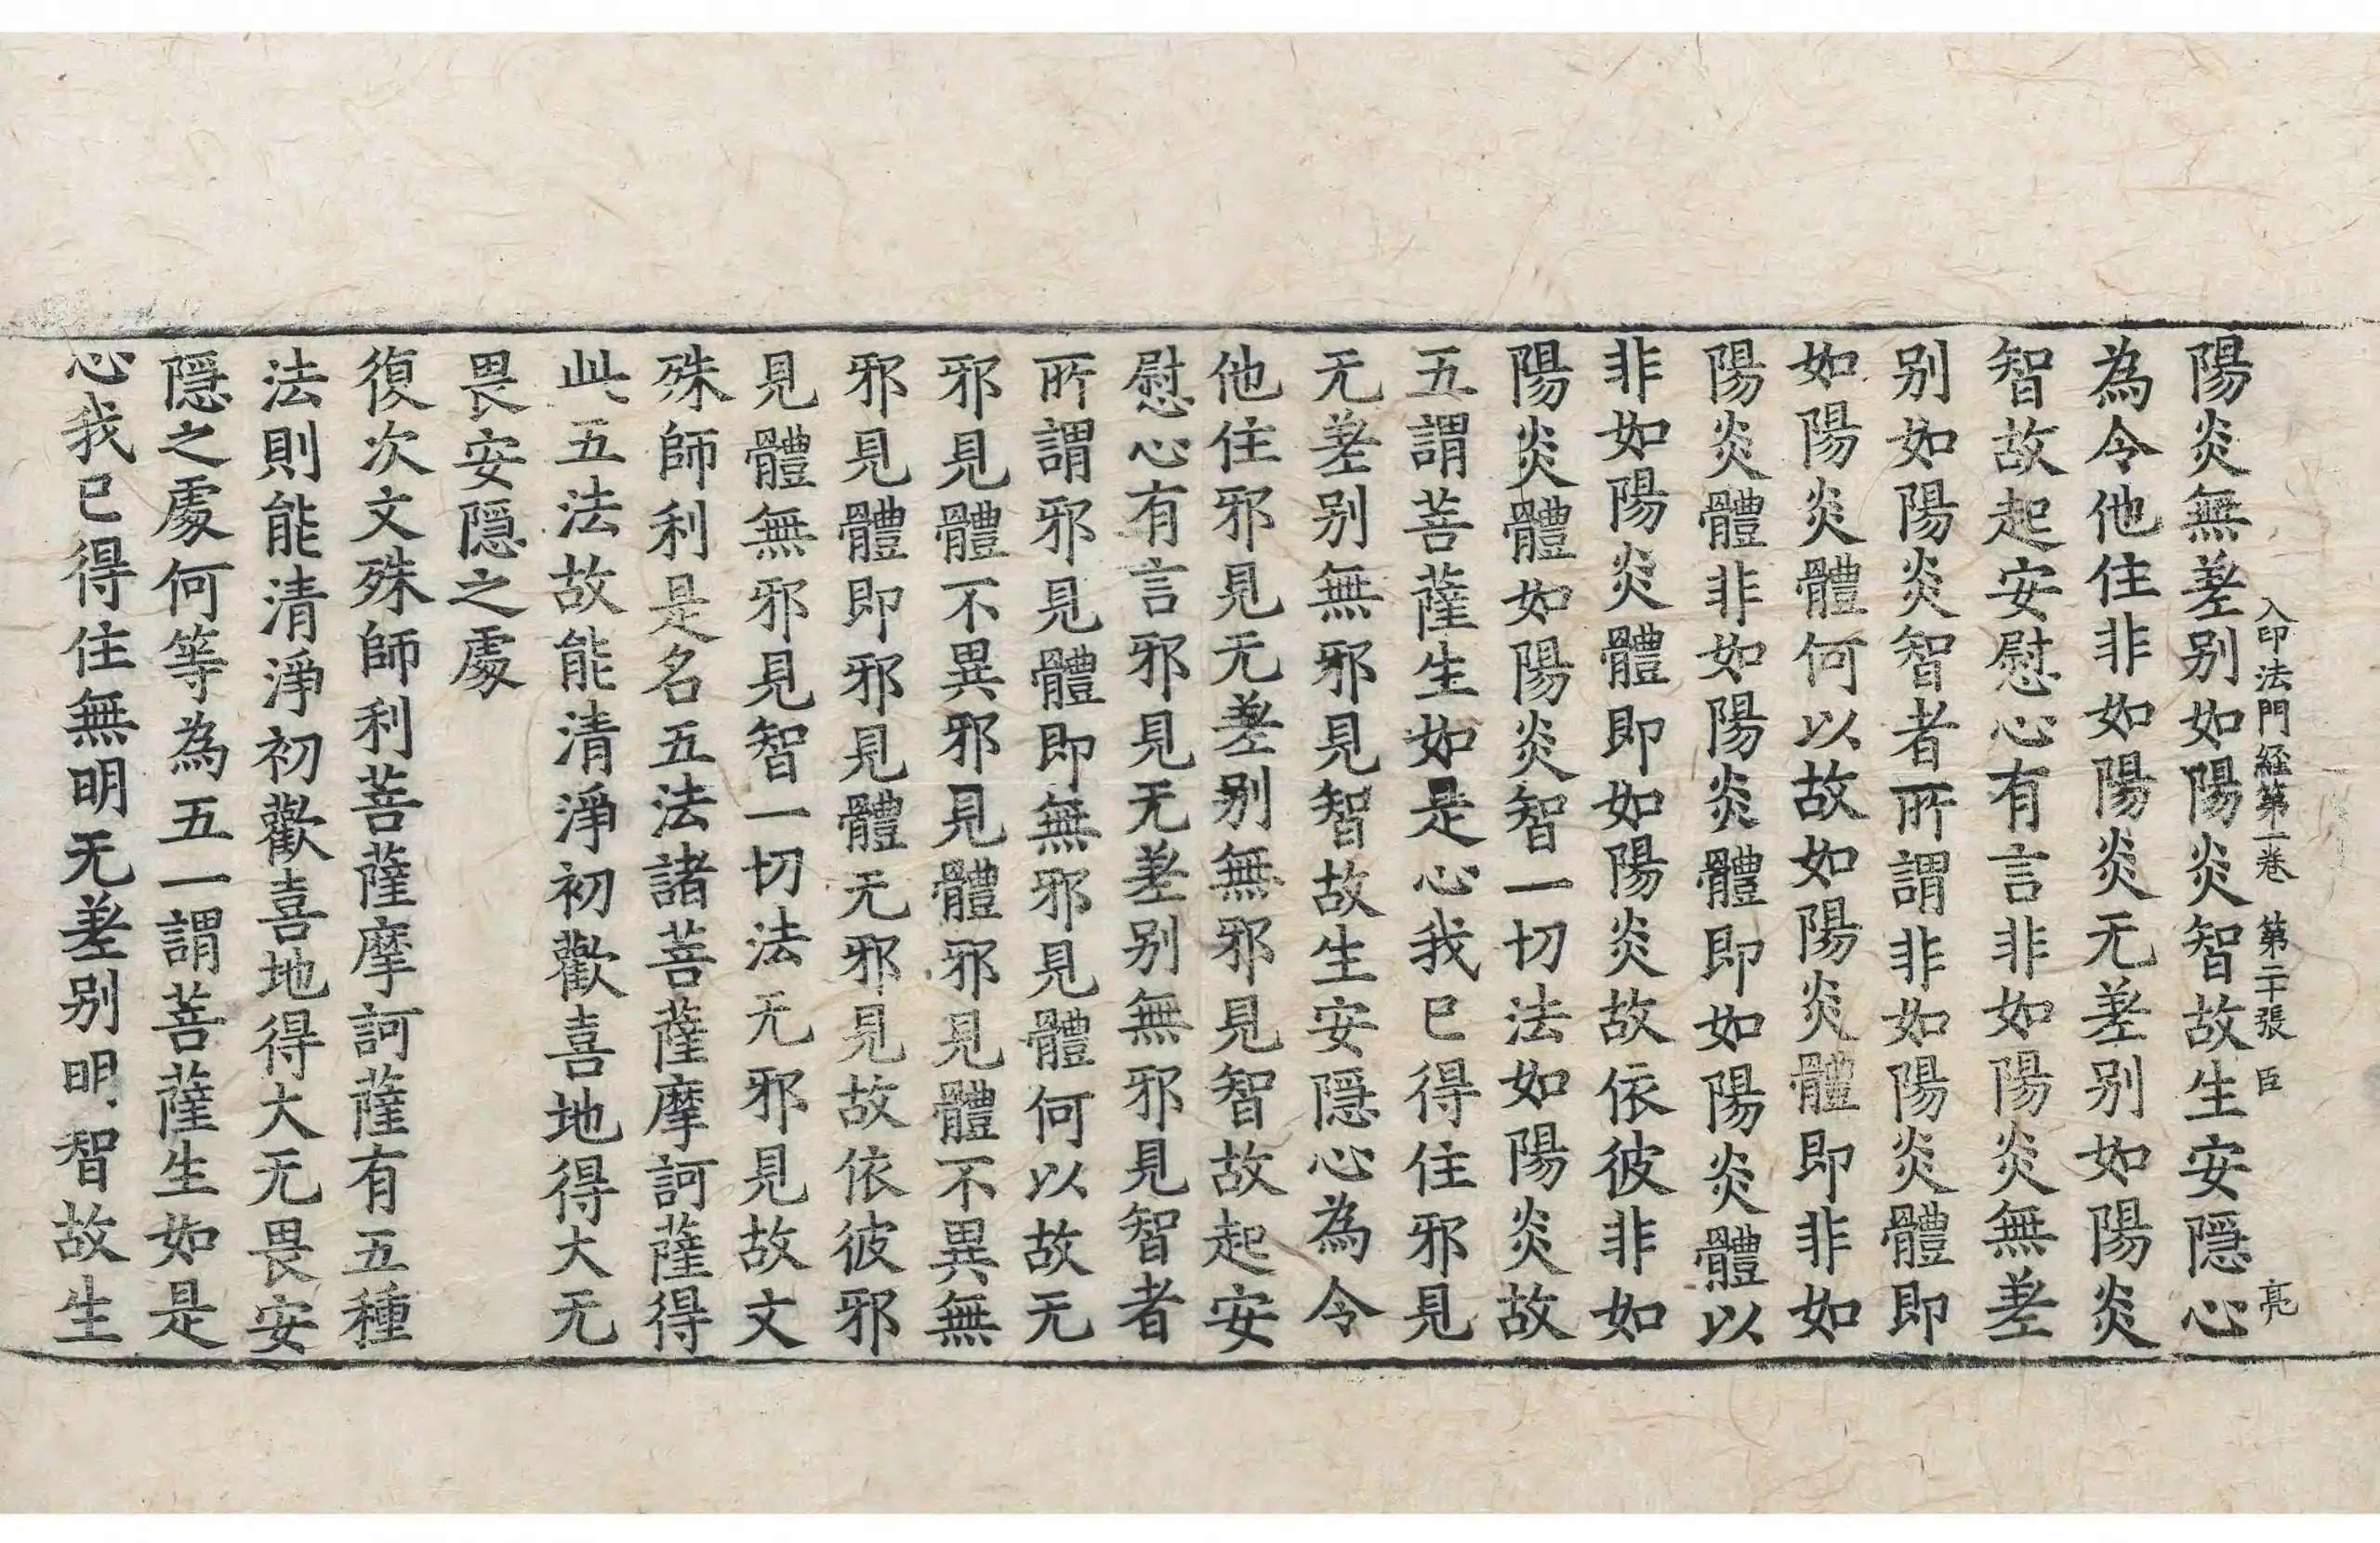 入印法門経第一卷　第二十張　臣　亮
陽炎無差别如陽炎智故生安隱心
為令他住非如陽炎无差别如陽炎
智故起安慰心有言非如陽炎無差
别如陽炎智者所謂非如陽炎體即
如陽炎體何以故如陽炎體即非如
陽炎體非如陽炎體即如陽炎體以
非如陽炎體即如陽炎故依彼非如
陽炎體如陽炎智一切法如陽炎故
五謂菩薩生如是心我已得住邪見
无差别無邪見智故生安隱心為令
他住邪見无差别無邪見智故起安
慰心有言邪見无差别無邪見智者
所謂邪見體即無邪見體何以故无
邪見體不異邪見體邪見體不異無
邪見體即邪見體无邪見故依彼邪
見體無邪見智一切法无邪見故文
殊師利是名五法諸菩薩摩訶薩得
此五法故能清淨初歡喜地得大无
畏安隱之處
復次文殊師利菩薩摩訶薩有五種
法則能清淨初歡喜地得大无畏安
隱之處何等為五一謂菩薩生如是
心我已得住無明无差别明智故生